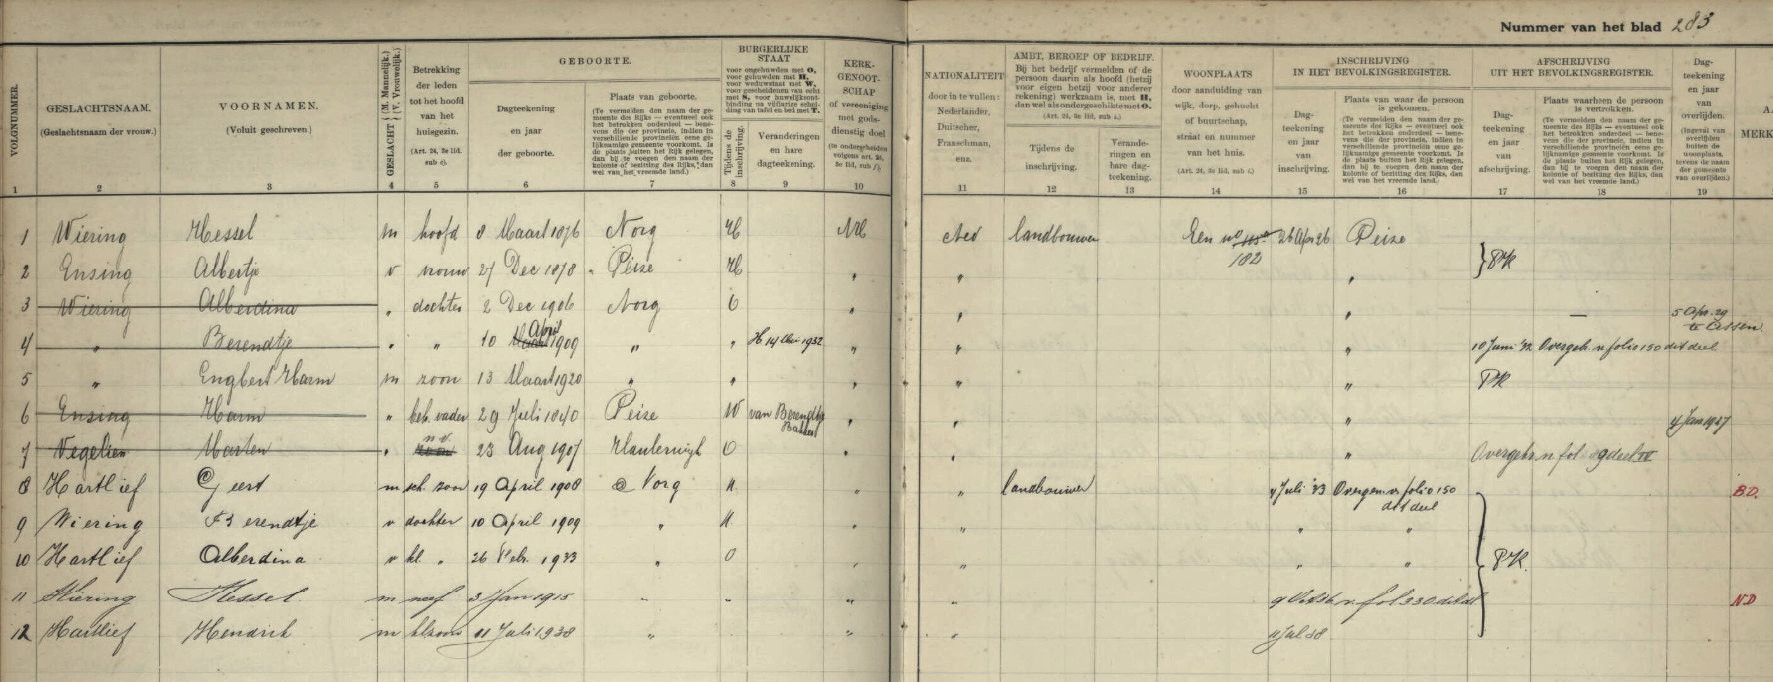 Nummer van het blad 283
VOLGNUMMER.
GESLACHTSNAAM.
(Geslachtsnaam der vrouw.)
VOORNAMEN.
(Voluit geschreven)
GESLACHT (M. Mannelijk.) (V. Vrouwelijk.)
Betrekking
der leden
tot het hoofd
van het
huisgezin.
(Art. 24, 3e lid,
sub c).
GEBOORTE.
Dagteekening
en jaar
der geboorte.
Plaats van geboorte.
(Te vermelden den naam der ge-
meente des Rijks — eventueel ook
het betrokken onderdeel — bene-
vens die der provincie, indien in
verschillende provinciën eene ge-
lijknamige gemeente voorkomt. Is
de plaats buiten het Rijk gelegen,
dan bij te voegen den naam der
kolonie of bezitting des Rijks, dan
wel van het vreemde land.)
BURGERLIJKE
STAAT
voor ongehuwden met O,
voor gehuwden met H,
voor weduwstaat met W,
voor gescheidenen van echt
met S, voor huwelijksont-
binding na vijfjarige schei-
ding van tafel en bed met T.
Tijdens de
inschrijving.
Veranderingen
en hare
dagteekening.
KERK-
GENOOT-
SCHAP
of vereeniging
met gods-
dienstig doel
NATIONALITEIT
door in te vullen:
Nederlander,
Duitscher,
Franschman,
enz.
AMBT, BEROEP OF BEDRIJF.
Bij het bedrijf vermelden of de
persoon daarin als hoofd (hetzij
voor eigen hetzij voor anderer
rekening) werkzaam is, met H,
dan wel als ondergeschikte met O.
Tijdens de
inschrijving.
Verande-
ringen en
hare dag-
teekening.
WOONPLAATS
door aanduiding van
wijk, dorp, gehucht
of buurtschap,
straat en nummer
van het huis.
INSCHRIJVING
IN HET BEVOLKINGSREGISTER.
Dag-
teekening
en jaar
van
inschrijving.
Plaats van waar de persoon
is gekomen.
AFSCHRIJVING
UIT HET BEVOLKINGSREGISTER.
Dag-
teekening
en jaar
van
afschrijving.
Plaats waarheen de persoon
is vertrokken.
Dag-
teekening
en jaar
van
overlijden.
1 2 3 4 5 6 7 8 9 10 11 12 13 14 15 16 17 18 19
1 Wiering Hessel m hoofd 8 Maart 1876 Norg H NH Ned landbouwer Een no 182 26 Apr 26 Peize
2 Ensing Albertje v vrouw 27 Dec 1878 " Peize H " " " PK
3 Wiering Alberdina " dochter 2 Dec 1906 Norg O " " " — 5 Apr. 29 te Assen
4 " Berendtje " " 10 April 1909 " " H 14 1932 " " " 10 Juni '32 Overgeb. n folio 150 dit deel
5 " Engbert Harm m zoon 13 Maart 1920 " " " " " PK
6 Ensing Harm " beh. vader 29 Juli 1840 Peize W van Berendtje " " " 4 Jan 1927
7 Vegelien Marten " n.v. 23 Aug 1907 Haulerwijk O " " " Overgebr. n fol. deel
8 Hartlief Geert m sch. zoon 19 April 1908 Norg H " " landbouwer Juli '33 Overgen. v folio 150 dit deel B.D.
9 Wiering Berendtje v dochter 10 April 1909 " H " " " "
10 Hartlief Alberdina v kl. " 26 Febr. 1933 " O " " " " PK.
11 Wiering Hessel m neef 3 Jan 1915 " " " " v fol 330 dit dl N.D
12 Hartlief Hendrik m klzoon 11 Juli 1938 " " " Jul 38